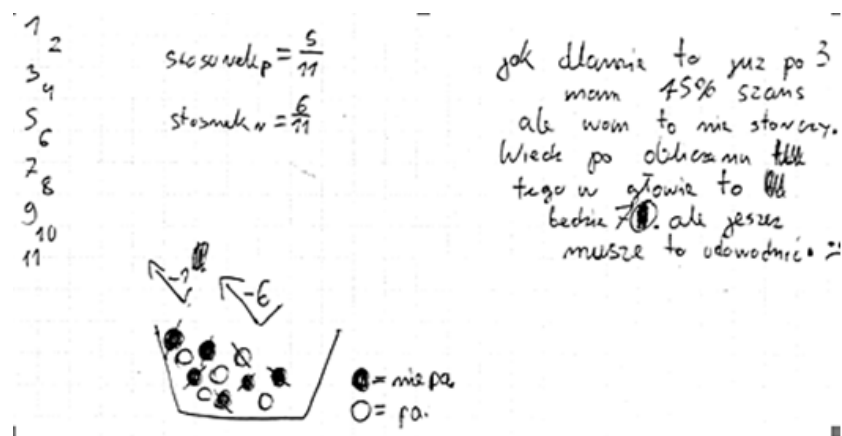 1
2
3
4
5
6
7
8
9
10
11
stosunek p = 5/11
stosunek n = 6/11
jak dlamnie to juz po 3
mam 45% szans
ale wam to nie starczy.
Wieck po obliczeniu
tego w głowie to
bedzie 7. ale jeszcz
musze to udowodnić. :
-1
-6
= nie pa.
= pa.